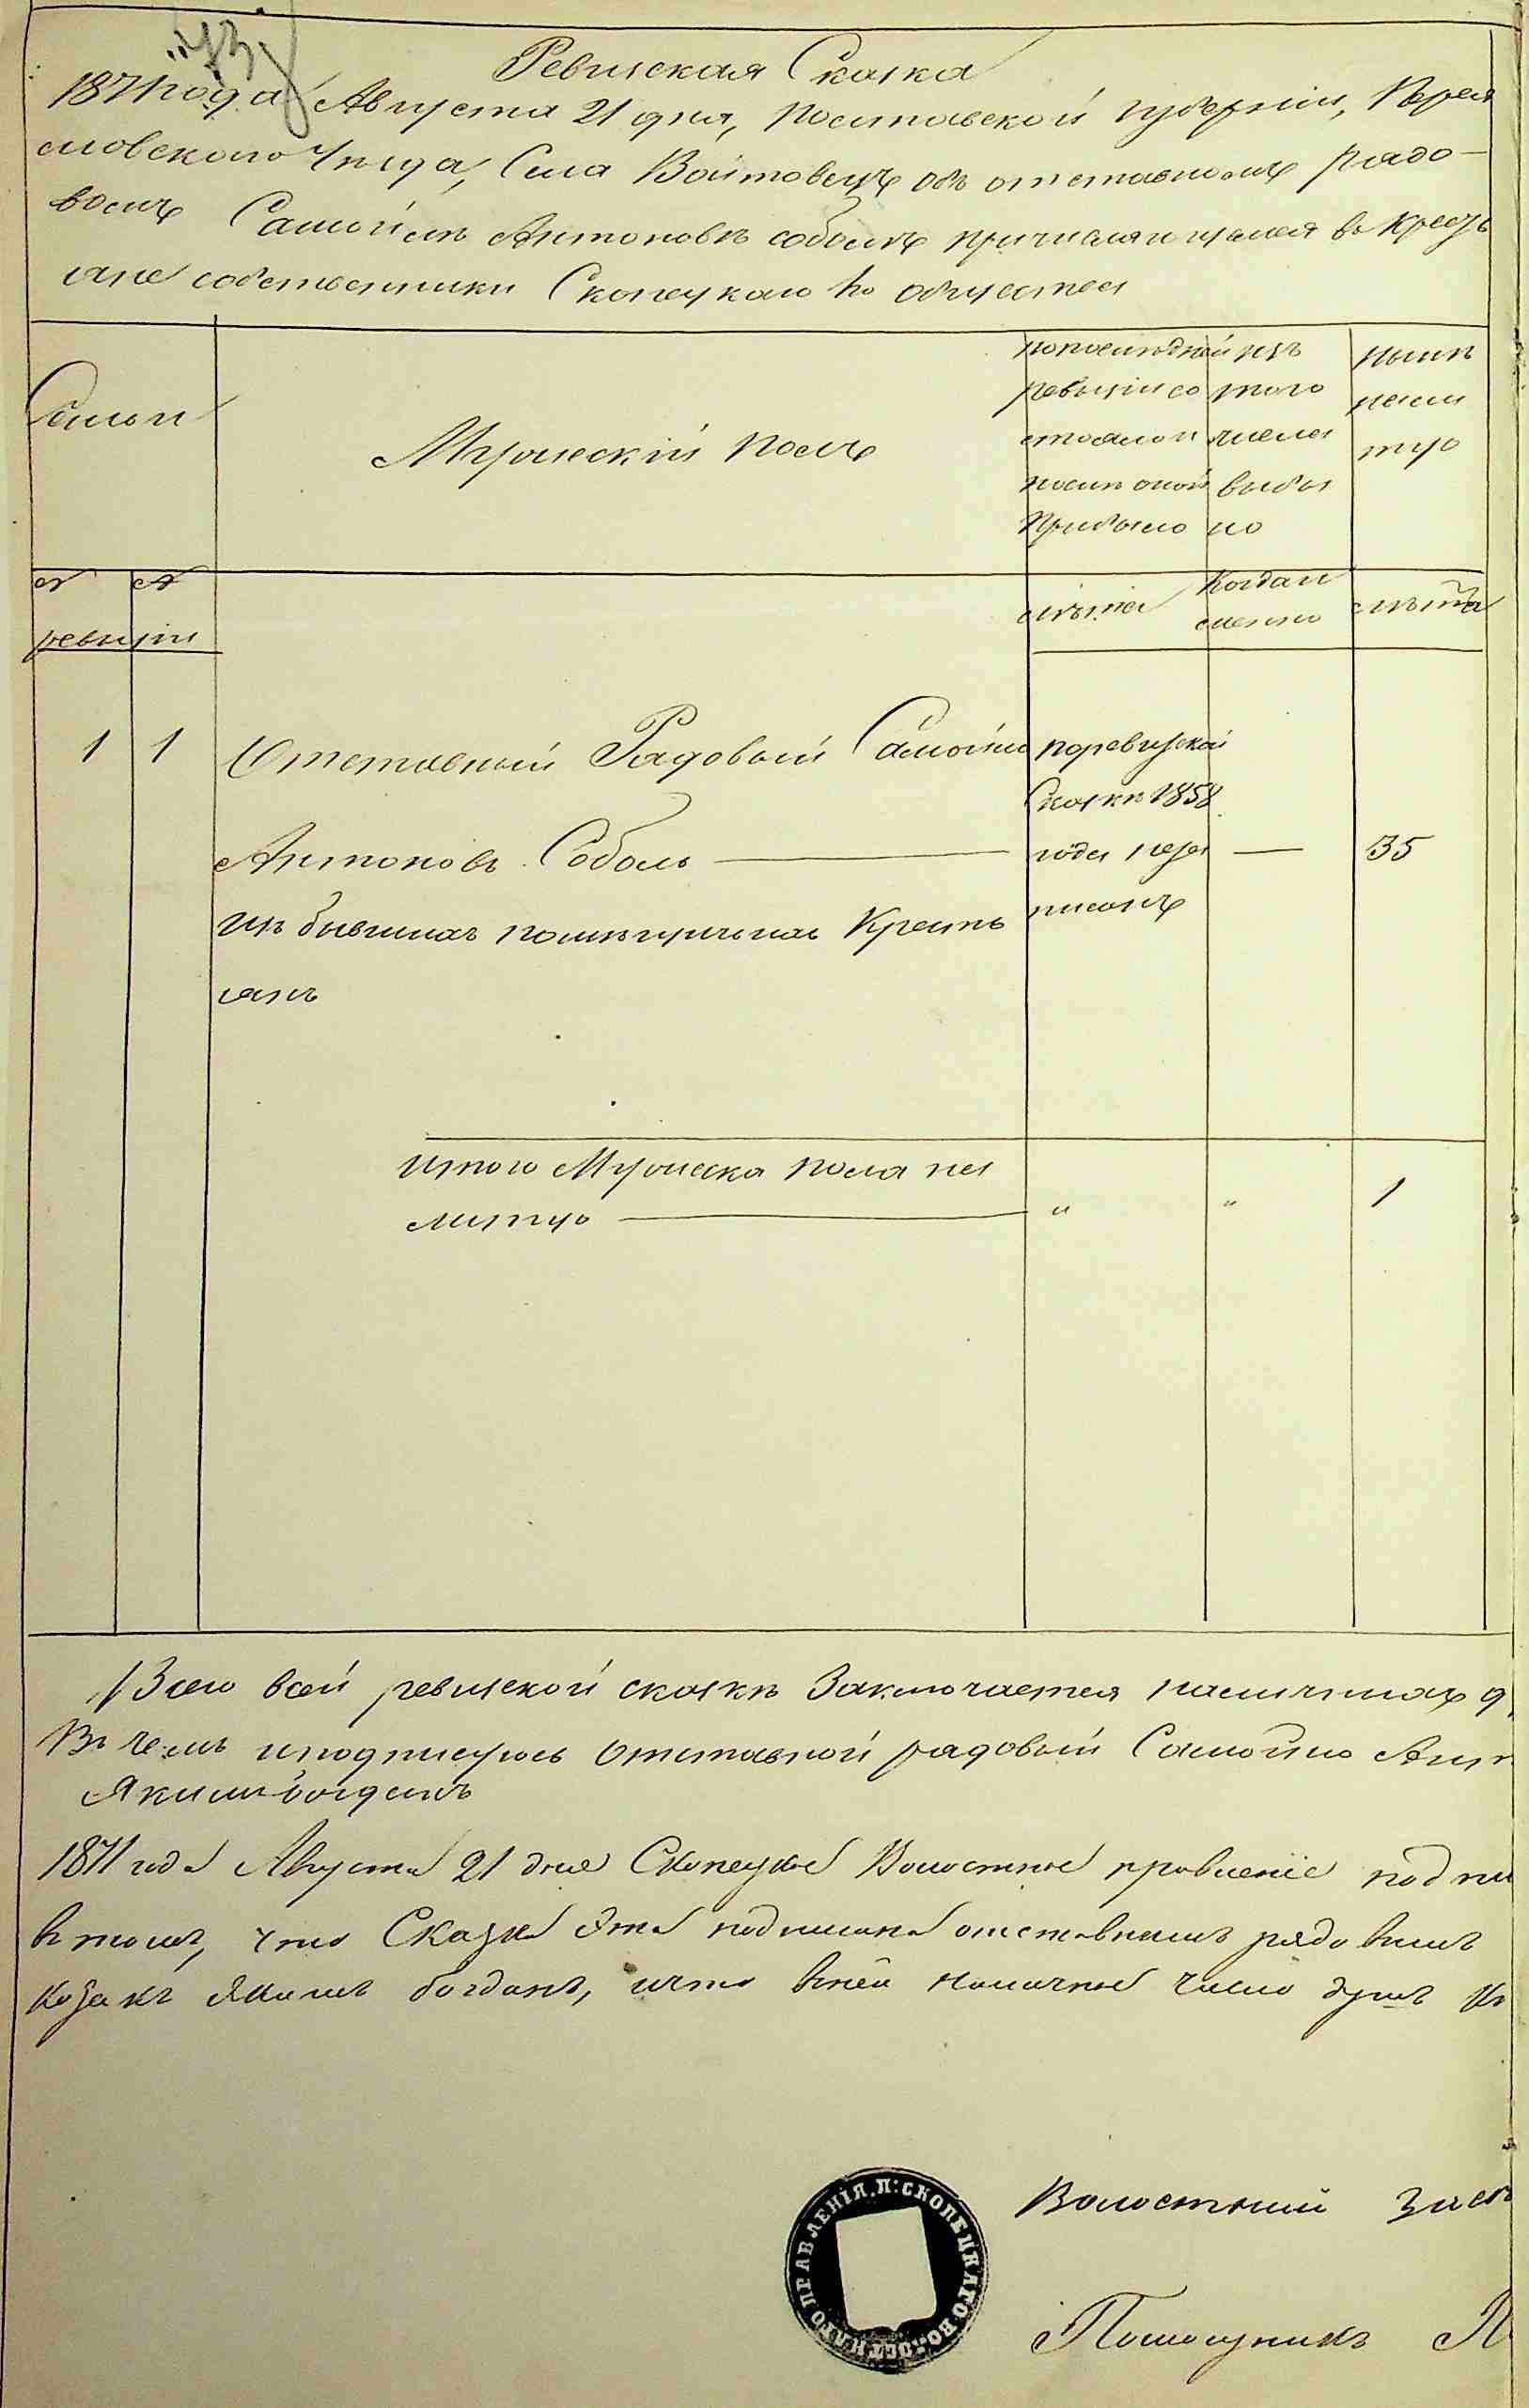 Ревизская Сказка
1871 года Августа 21 дня, Полтавской губерніи, Перея
словского Уезда, Села Войтовецъ объ отставномъ рядо-
вомъ Самойлѣ Антоновѣ соболѣ причисляющемся въ Крестья
яне собственники Скопецкаго го общества
Семьи
Мужескій полъ
по последней
ревизіи со
стояло и
послѣ оной
прибыло
изъ
того
числа
выбы
ло
нынѣ
нали
цо
№ №
ревизіи
лѣта
Когда и
менно
лѣта
1 1
Отставный Рядовый Самойло
Антоновъ Соболь —
изъ бывшихъ помѣщичьихъ Кресть
янъ
по ревизской
Сказкѣ 1858
года пока
писанъ
—
35
Итого Мужеска пола на
лицо —
"
"
1
Всего въ сей ревизской сказкѣ Заключается наличныхъ
Въ чемъ и подписуюсь Отставной рядовый Самойло
Якимъ Богданъ
1871 года Августа 21 дня Скопецкое Волостное правленіе
въ томъ, что Сказка эта подписана отставнымъ рядовымъ
козакъ Якимъ богданъ, и что въ ней наличное число душъ
Волостный
Помощникъ
ПРАВЛЕНІЯ. П: СКОПЕЦКАГО ВОЛОСТНАГО